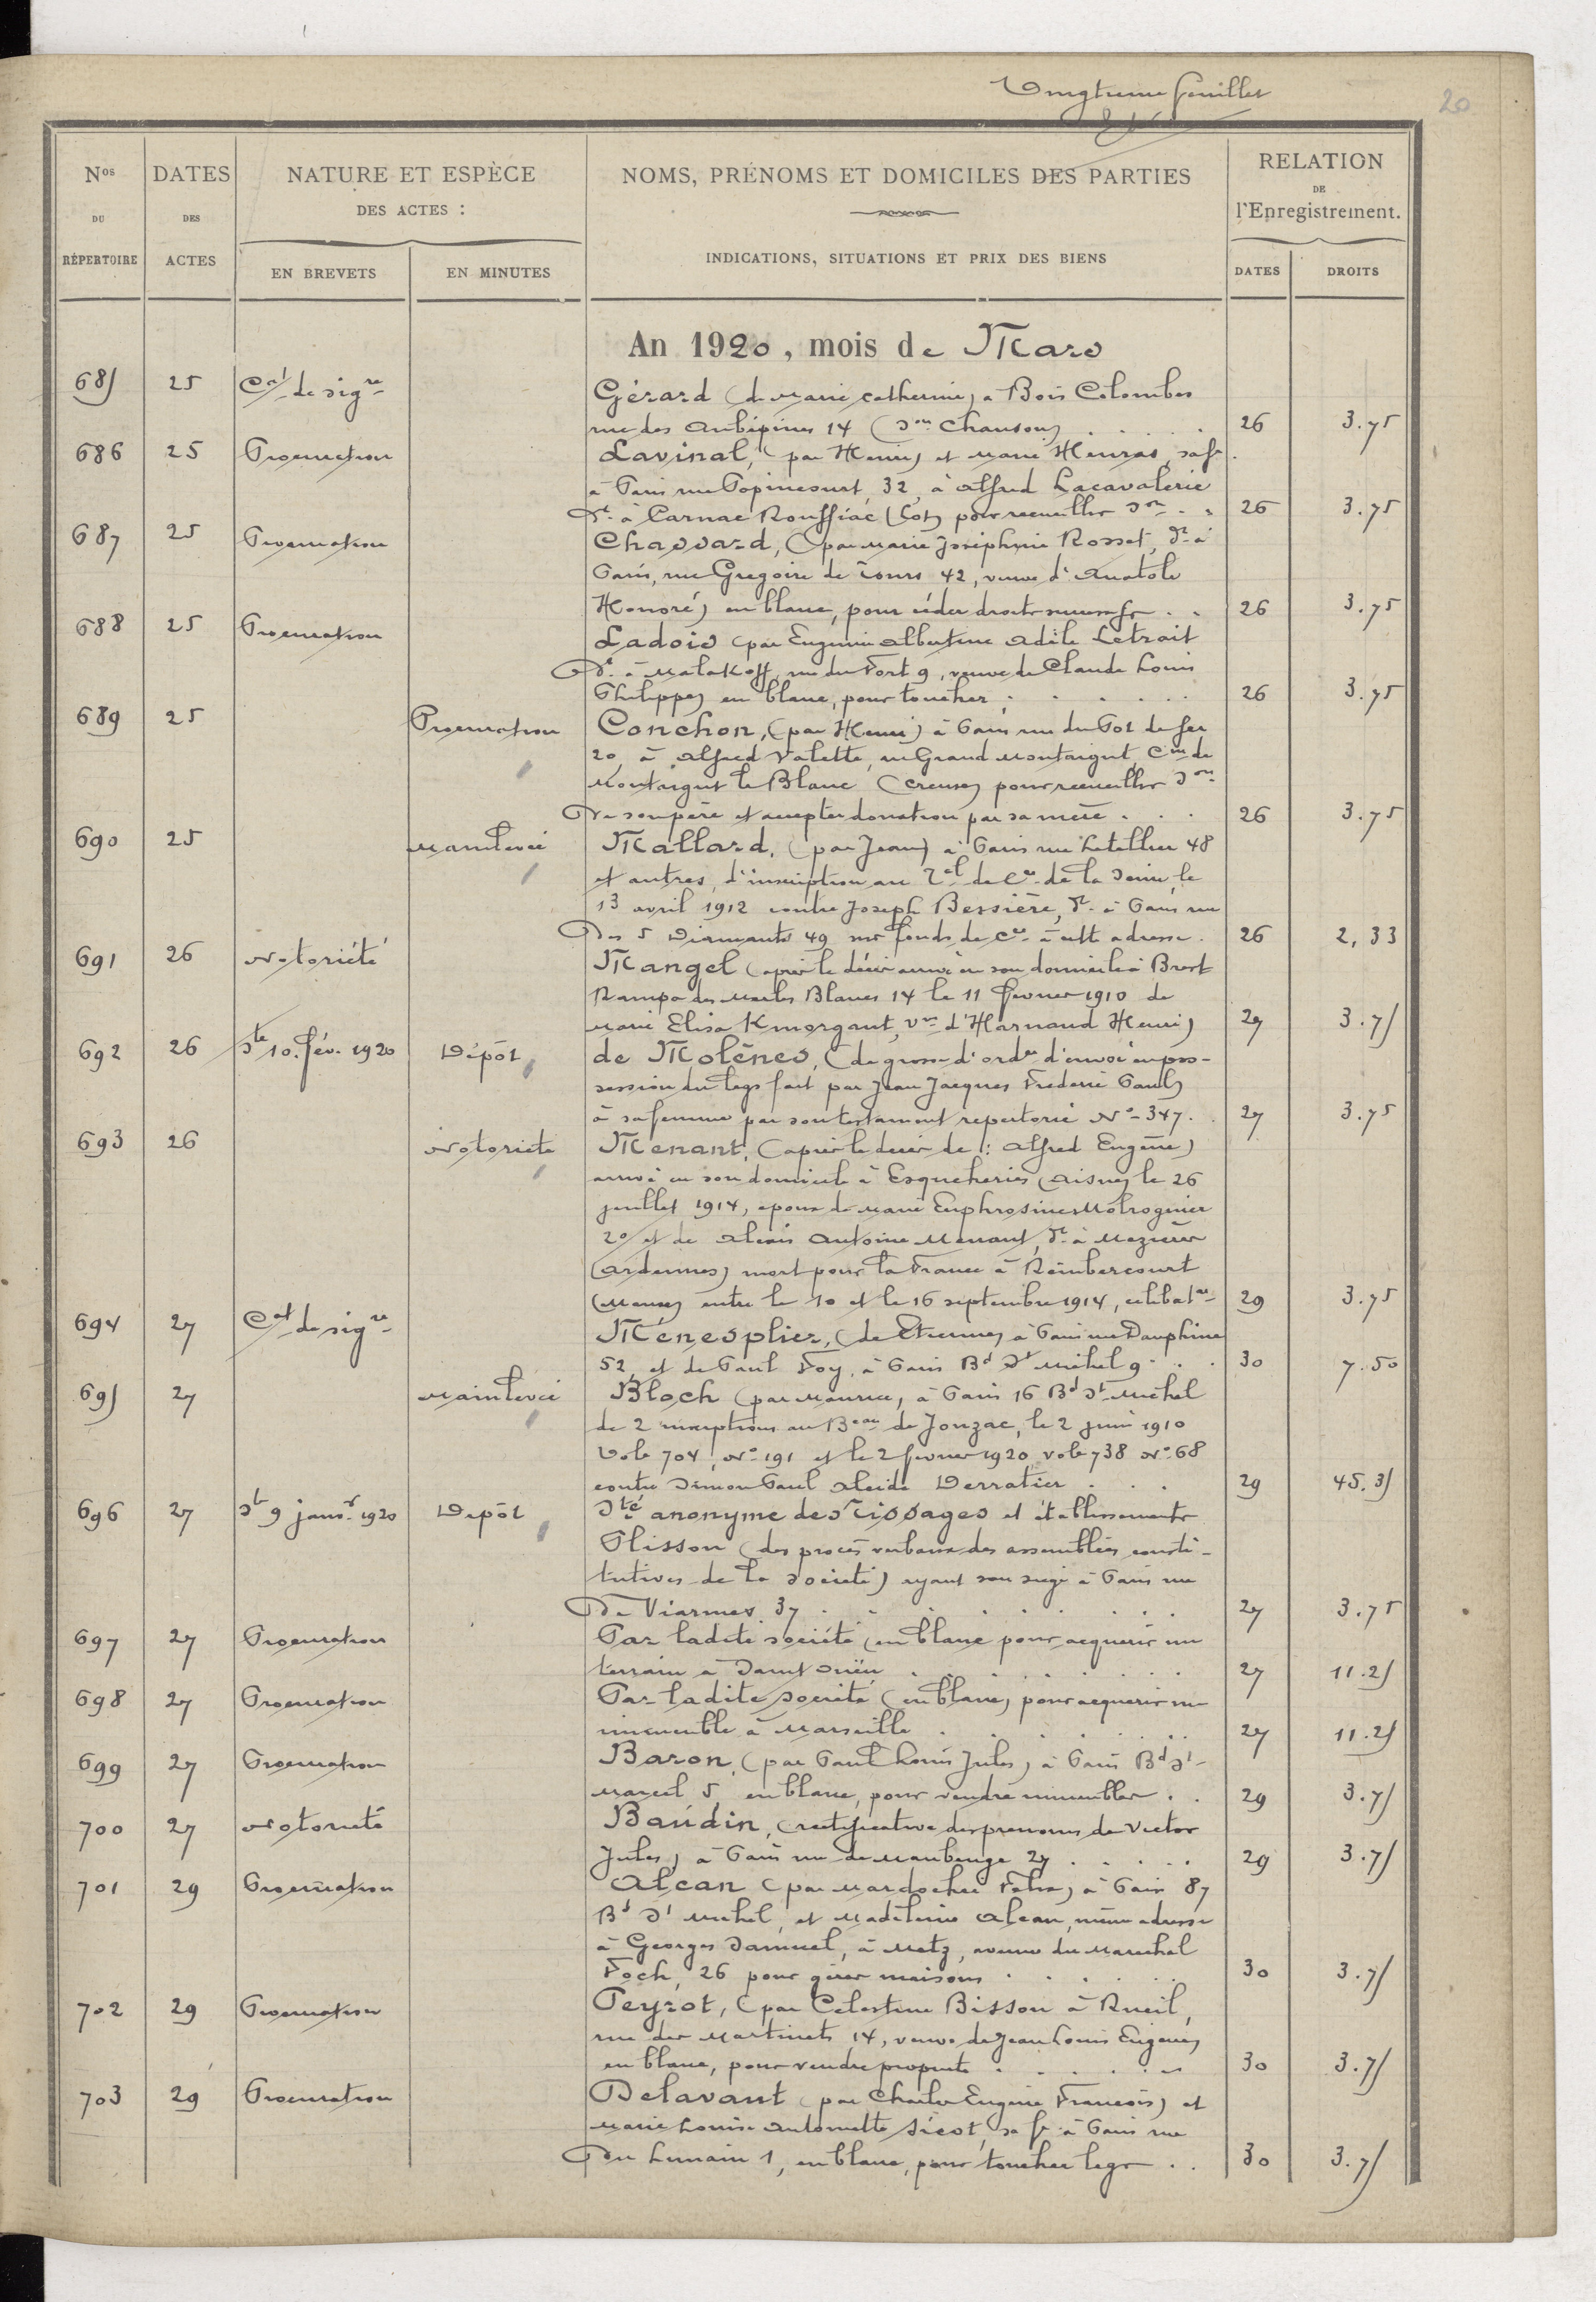 Vingtieme feuillet
20
Nos DU RÉPERTOIRE
DATES DES ACTES
NATURE ET ESPÈCE DES ACTES :
EN BREVETS
EN MINUTES
NOMS, PRÉNOMS ET DOMICILES DES PARTIES
INDICATIONS, SITUATIONS ET PRIX DES BIENS
RELATION DE l'Enregistrement.
DATES
DROITS
An 1920, mois de Mars
685 25 Cat de sigre Gérard (de Marie Catherine) à Bois Colombes
rue des Aubépines 14 (son Chanson) 26 3.75
686 25 Procuration Lavinal, (par Henri) et Marie Henras, sa fe
à Paris rue Popincourt, 32, à Alfred Lacavalerie
dt à Carnac Rouffiac (Lot) pour recueillir son 26 3.75
687 25 Procuration Chassard, (par Marie Joséphine Rosset, dt à
Paris, rue Gregoire de Tours 42, veuve d'Anatole
Honoré) en blanc, pour céder droits success fs 26 3.75
688 25 Procuration Ladois (par Eugenie Albertine Adèle Letrait
dt à Malakoff, rue du Fort 9, veuve de Claude Louis
Philippe) en blanc, pour toucher 26 3.75
689 25 Procuration Conchon, (par Henri) à Paris rue du Pot de fer
20, à Alfred Valette, au Grand Montaigut, Cne de
Montaigut le Blanc (Creuse) pour recueillir son
de son père et accepter donation par sa mère 26 3.75
690 25 Mainlevée Mallard, (par Jean) à Paris rue Letellier 48
et autres, d'inscription au Tal de Cce de la Seine, le
13 avril 1912 contre Joseph Bessière, dt à Paris rue
des 5 Diamants 49 sur fonds de Cce à cette adresse. 26 2,33
691 26 Notoriété Mangel (après le décès arrivé en son domicile à Brest
Rampe des Merles Blancs 14 le 11 février 1910 de
Marie Elisa Kmorgant, vve d'Harnaud Henri) 27 3.75
692 26 Ste 10. fév. 1920 Dépôt de Molènes, (de grosse d'ordce d'envoi en pos-
session du legs fait par Jean Jacques Frederic Paul)
à sa femme par son testament repertorié No 347. 27 3.75
693 26 Notoriété Menant, (après le décès de 1: Alfred Eugène)
arrivé en son domicile à Esqueheries (Aisne) le 26
juillet 1914, époux de Marie Euphrosine Molrognier
2o/ et de Alexis Antoine Menant, dt à Mezières
(Ardennes) mort pour la France à Rembercourt
(Meuse) entre le 10 et le 16 septembre 1914, celibatre 29 3.75
694 27 Cat de sigre Ménesplier, (de Etienne) à Paris rue Dauphine
52, et de Paul Foy, à Paris Bd St Michel 9 30 7.50
695 27 Mainlevée Bloch (par Maurice) à Paris 16 Bd St Michel
de 2 inscriptions au Beau de Jonzac, le 2 juin 1910
vole 704, No 191 et le 2 fevrier 1920, vole 738 No 68
contre Simon Paul Alcide Derratier 29 45.35
696 27 St 9 janvr 1920 Dépôt Sté anonyme des Tissages et établissements
Plisson (des procès verbaux des assemblées consti-
tutives de la société) ayant son siège à Paris rue
de Viarmes 37 27 3.75
697 27 Procuration Par ladite société (en blanc pour acquérir un
terrain à Saint Ouen 27 11.25
698 27 Procuration Par ladite société (en blanc) pour acquerir un
immeuble à Marseille 27 11.25
699 27 Procuration Baron, (par Paul Louis Jules) à Paris Bd St
Marcel 5, en blanc, pour vendre immeubles 29 3.75
700 27 Notoriété Baudin, (rectificative des prenoms de Victor
Jules) à Paris rue de Maubeuge 27 29 3.75
701 29 Procuration Alcan (par Mardochée Felix) à Paris 87
Bd St Michel, et Madeleine Alcan, même adresse
à Georges Samuel, à Metz, avenue du Marechal
Foch, 26 pour gérer maisons 30 3.75
702 29 Procuration Peyrot, (par Celestine Bisson à Rueil,
rue des Martinets 14, veuve de Jean Louis Eugène)
en blanc, pour vendre propriété 30 3.75
703 29 Procuration Delavant (par Charles Eugène François) et
Marie Louise Antoinette Sicot, sa fe à Paris rue
du Lunain 1, en blanc, pour toucher legs 30 3.75